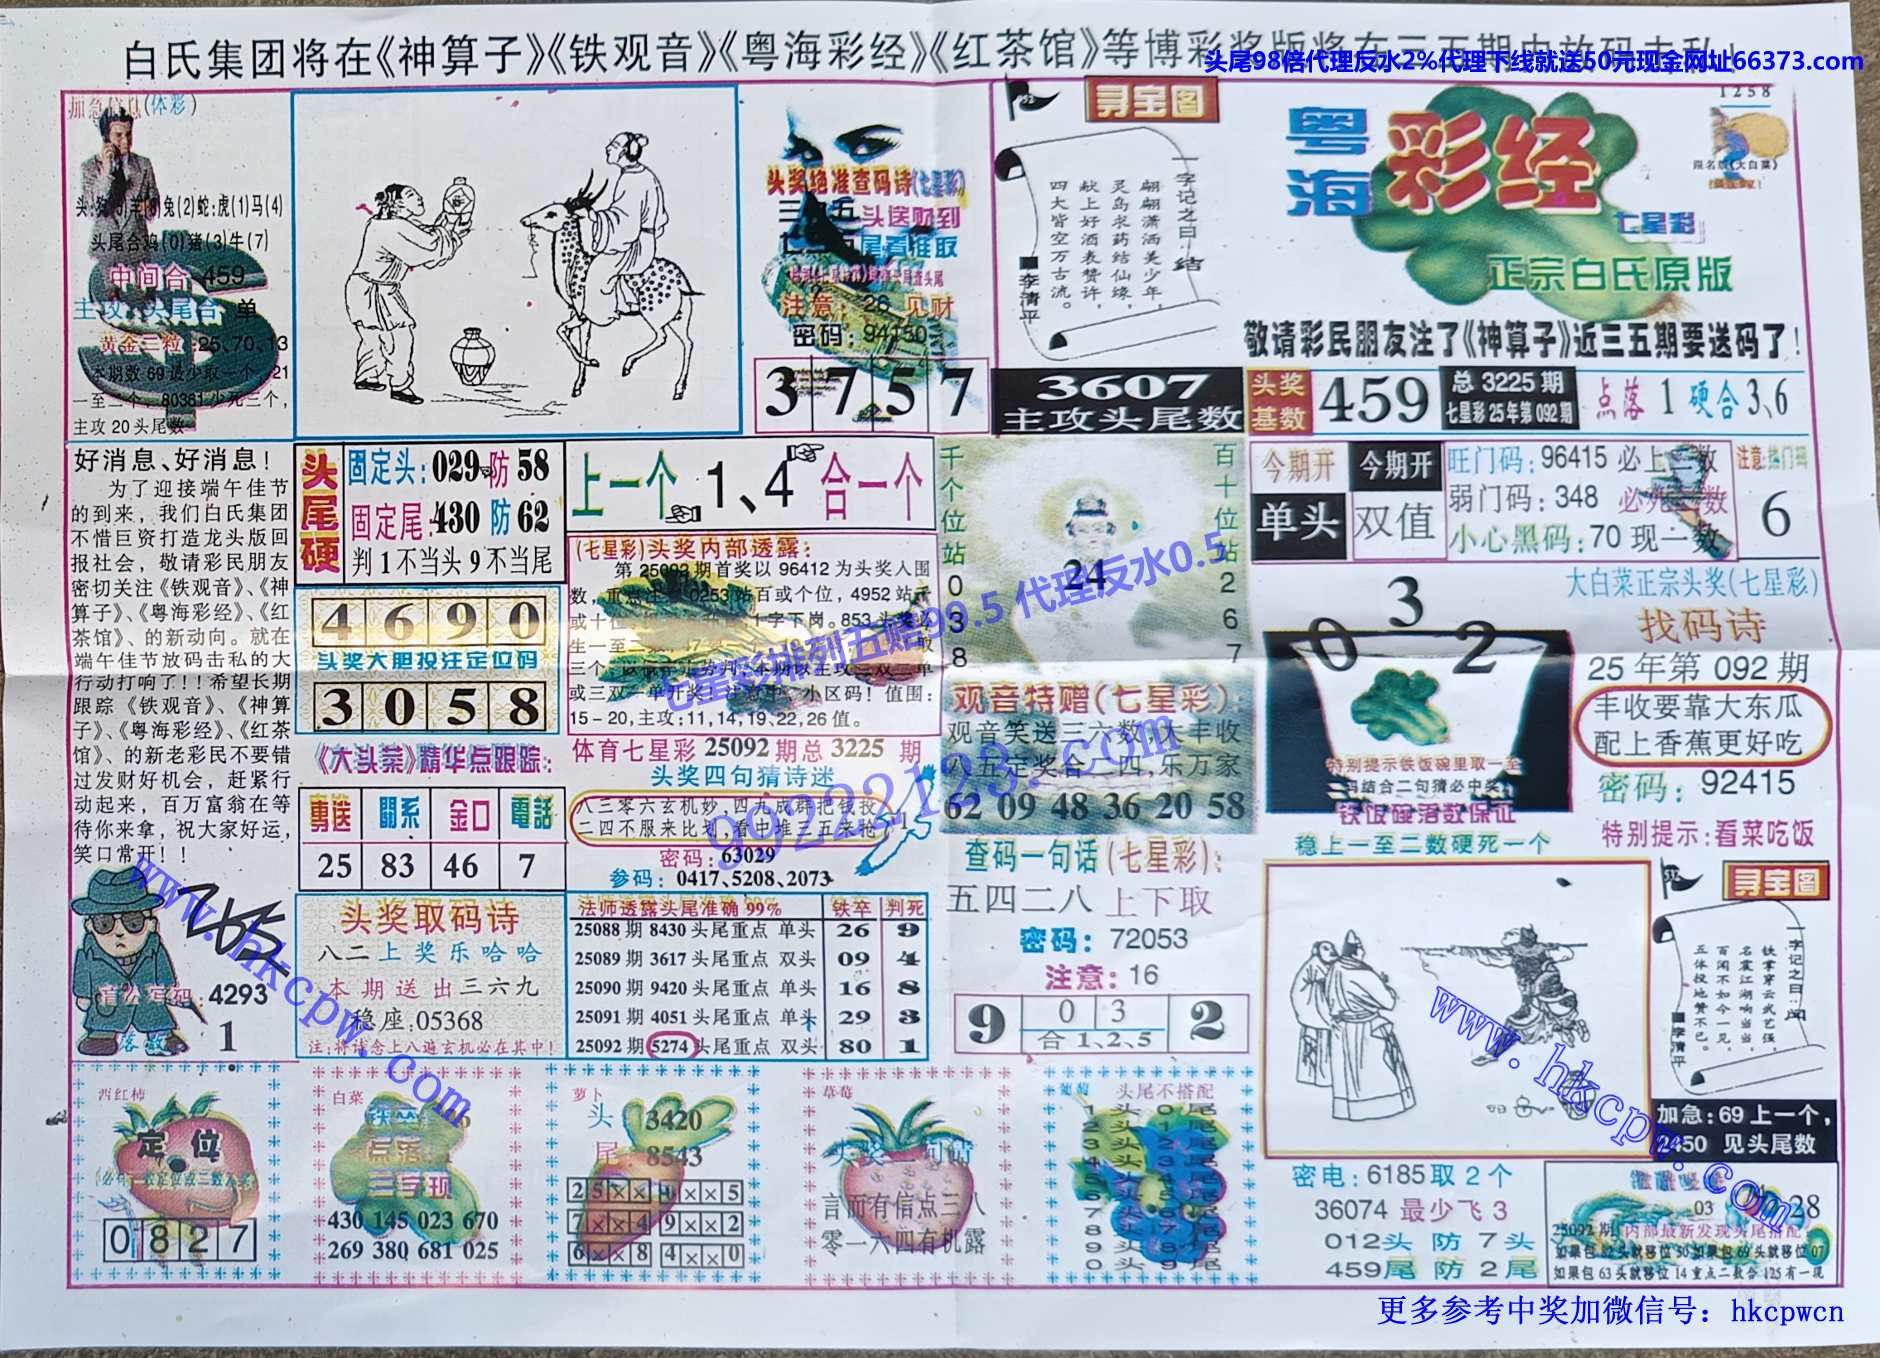 白氏集团将在《神算子》《铁观音》《粤海彩经》《红茶馆》等博彩奖版将在三五期内放码击私！
头尾98倍代理反水2%代理下线就送50元现金网址66373.com
加急信息(体彩)
头尾合鸡(0)猪(3)牛(7)
中间合 459
主攻:头尾合 单
黄金三粒:25、70、13
本期数 69 最少取一个、21
主攻 20 头尾数
头奖绝准查码诗(七星彩)
注意：26 见财
密码：94150
3 7 5 7
寻宝图
一字记之曰：结
翩翩潇洒美少年，
灵鸟求药结仙缘，
献上好酒表赞许，
四大皆空万古流。
■李清平
1258
粤海彩经
七星彩
正宗白氏原版
敬请彩民朋友注了《神算子》近三五期要送码了！
3607
主攻头尾数
头奖基数
459
总 3225 期
七星彩 25 年第 092 期
点落 1 硬合 3、6
好消息、好消息！
为了迎接端午佳节
的到来，我们白氏集团
不惜巨资打造龙头版回
报社会，敬请彩民朋友
密切关注《铁观音》、《神
算子》、《粤海彩经》、《红
茶馆》、的新动向。就在
端午佳节放码击私的大
行动打响了！！希望长期
跟踪《铁观音》、《神算
子》、《粤海彩经》、《红茶
馆》、的新老彩民不要错
过发财好机会，赶紧行
动起来，百万富翁在等
待你来拿，祝大家好运，
笑口常开！！
头尾硬
固定头：029 防 58
固定尾：430 防 62
判 1 不当头 9 不当尾
上一个 1、4 合一个
4 6 9 0
头奖大胆投注定位码
3 0 5 8
(七星彩)头奖内部透露：
第 25092 期首奖以 96412 为头奖入围
15－20，主攻：11，14，19，22，26 值。
千个位站
0
3
8
24
百十位站
2
6
7
今期开
单头
今期开
双值
旺门码：96415 必上二数
弱门码：348 必死一数
小心黑码：70 现一数
注意:热门码
6
大白菜正宗头奖(七星彩)
找码诗
25 年第 092 期
丰收要靠大东瓜
配上香蕉更好吃
密码：92415
特别提示：看菜吃饭
0 3 2
特别提示铁饭碗里取一至
铁饭碗落数保证
稳上一至二数硬死一个
《大头菜》精华点跟踪：
專送 關系 金口 電話
25 83 46 7
体育七星彩 25092 期总 3225 期
头奖四句猜诗迷
八三零六玄机妙，四九成群把钱投
二四不服来比划，看中堆三五来抢
密码：63029
参码：0417、5208、2073
观音特赠(七星彩)：
观音笑送三六数，大丰收
八五定奖合二四，乐万家
62 09 48 36 20 58
查码一句话(七星彩)：
五四二八上下取
密码：72053
注意：16
9 0 3 2
合 1、2、5
4293
1
头奖取码诗
八二上奖乐哈哈
本期送出三六九
稳座：05368
注：将诗念上八遍玄机必在其中！
法师透露头尾准确 99% 铁卒 判死
25088 期 8430 头尾重点 单头 26 9
25089 期 3617 头尾重点 双头 09 4
25090 期 9420 头尾重点 单头 16 8
25091 期 4051 头尾重点 单头 29 3
25092 期 5274 头尾重点 双头 80 1
寻宝图
一字记之曰：闻
铁掌穿云武艺强，
名震江湖响当当，
百闻不如今一见，
五体投地赞不已。
■李清平
加急：69 上一个，
2450 见头尾数
西红柿
定位
0 8 2 7
白菜
点落
三字现
430 145 023 670
269 380 681 025
萝卜
头 3420
尾 8543
2 5 × × 0 × × 5
7 × × 4 9 × × 2
6 × × 8 4 × × 0
草莓
言而有信点三八
零一六四有机露
葡萄
头尾不搭配
1 头 0 尾
密电：6185 取 2 个
36074 最少飞 3
012 头 防 7 头
459 尾 防 2 尾
03
28
25092 期 内部最新发现头尾搭配
如果包 82 头就移位 50 如果包 69 头就移位 07
如果包 63 头就移位 14 重点二数合 125 有一现
七星彩排列五赔99.5 代理反水0.5
99222123.com
www.hkcpw.com
www.hkcpw.com
更多参考中奖加微信号：hkcpwcn